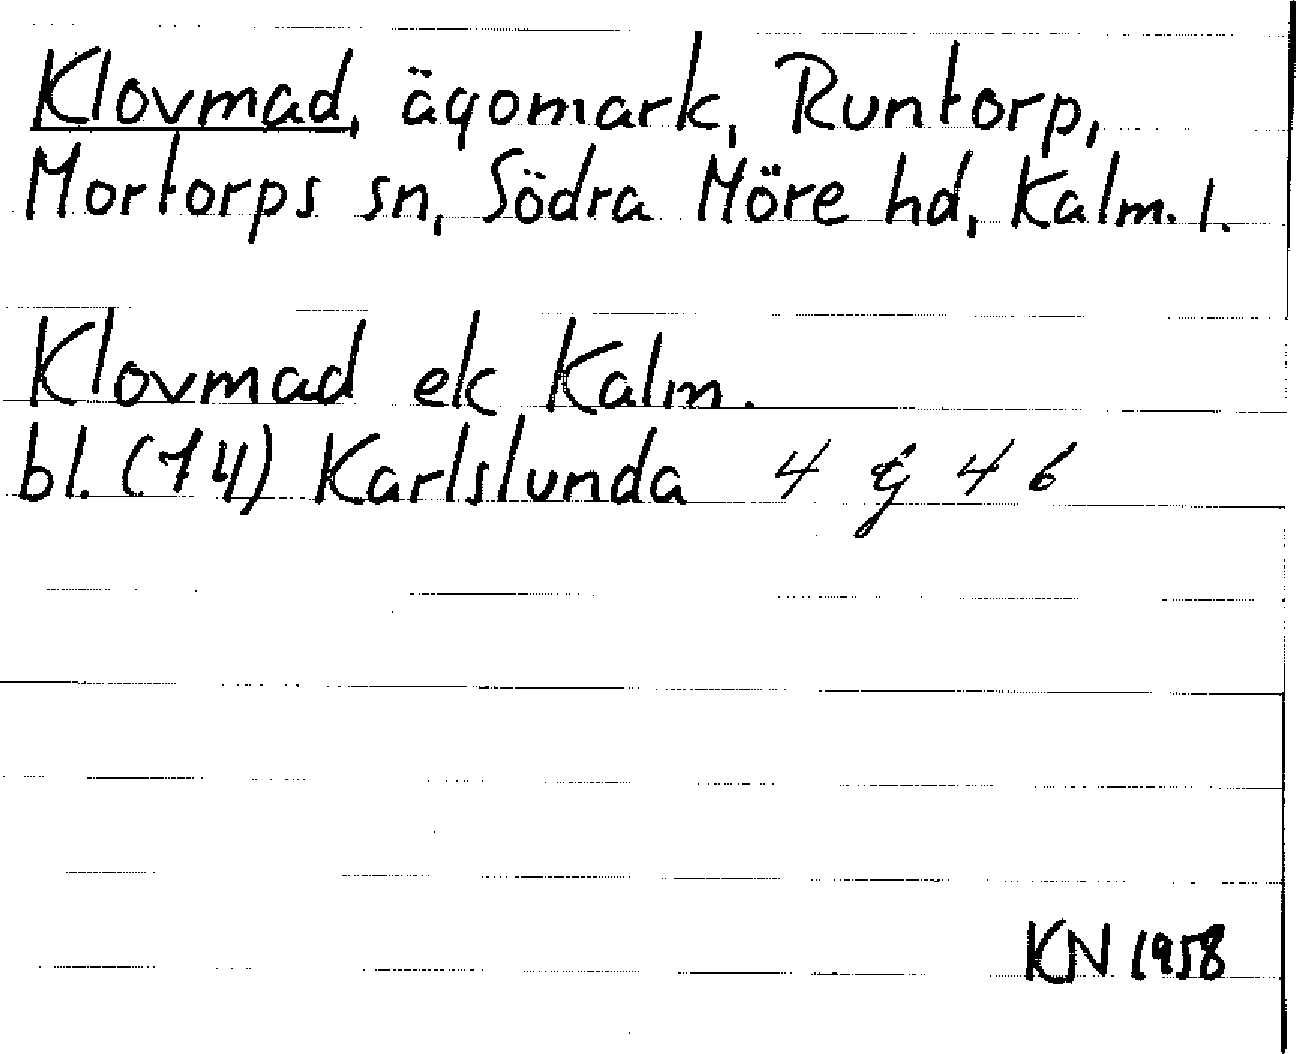 Klovmad, ägomark, Runtorp,
Mortorps sn, Södra Möre hd, Kalm. l.
Klovmad ek Kalm.
bl. (14) Karlslunda 4 G 4 b
KN 1958